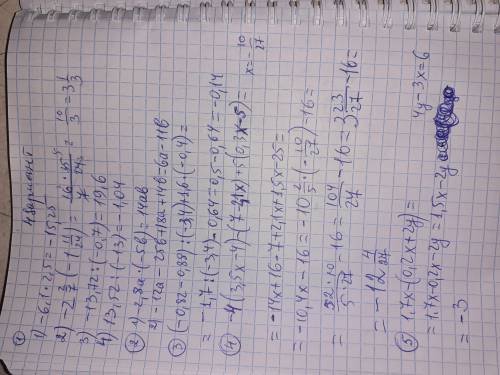 4 вариант
① 1) -6,1 · 2,5 = -15,25
2) -2 2/7 · (-1 11/24) = 16 · 35 / 7 · 24 = 10/3 = 3 1/3
3) -13,72 : (-0,7) = 19,6
4) 13,52 : (-13) = -1,04
② 1) -2,8a · (-5b) = 14ab
2) -12a - 25b + 18a + 14b = 6a - 11b
③ (-0,82 - 0,88) : (-3,4) + 1,6 · (-0,4) =
= -1,7 : (-3,4) - 0,64 = 0,5 - 0,64 = -0,14
④ -4(3,5x - 4) - (7 - 2,1x) + 5(0,3x - 5) = x = -10/27
= -14x + 16 - 7 + 2,1x + 1,5x - 25 =
= -10,4x - 16 = -10 2/5 · (-10/27) - 16 =
= 52 · 10 / 5 · 27 - 16 = 104/27 - 16 = 3 23/27 - 16 =
= -12 4/27
⑤ 1,7x - (0,2x + 2y) = 4y - 3x = 6
= 1,7x - 0,2x - 2y = 1,5x - 2y
= -3